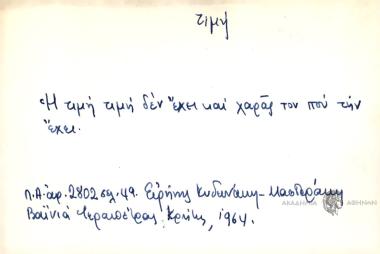 τιμή
Ἡ τιμή τιμή δέν ἔχει καί χαρᾶς τον πού τήν
ἔχει.
Λ.Α. ἀρ. 2802 σελ. 49. Εἰρήνης Κυδωνάκη-Μαστεράκη
Βαϊνιά Ἱεραπέτρας, Κρήτης, 1964.
ΑΚΑΔΗΜΙΑ ΑΘΗΝΩΝ